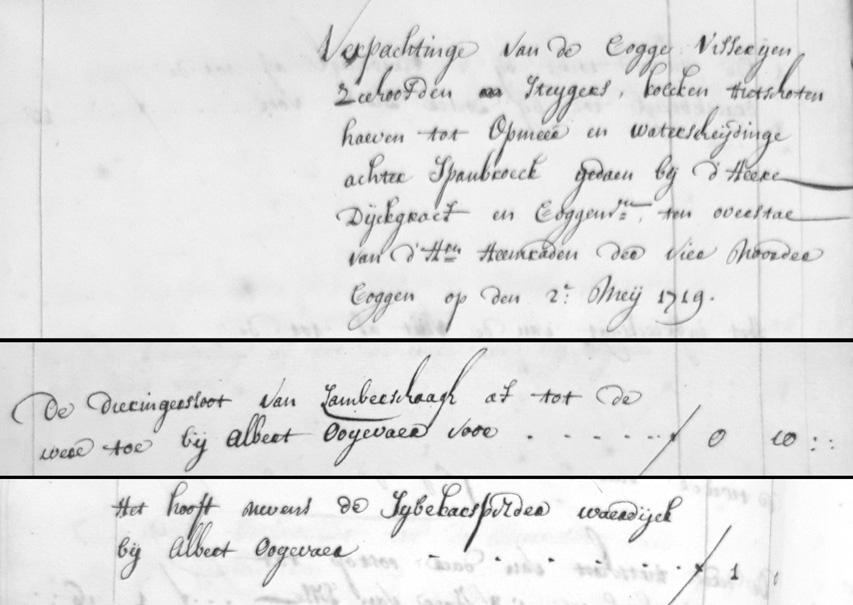 Verpachtinge van de Cogge Visserijen
Zeehoofden en Steygers, kolcken Rietschoten
haeven tot Opmeer en waterscheijdinge
achter Spanbroeck gedaen bij d'Heere
Dijckgraef en Coggenrs. ten overstae
van d'Hren Heemraden der vier Noorder
Coggen op den 2e Meij 1719.
De Dieringersloot van Lamberschaagh af tot de
weere toe bij Albert Oogevaer voor . . . . . . ƒ 0 10 : :
Het hooft nevens de Sybekarspelder waerdijck
bij Albert Oogevaer . . . . . ƒ 1